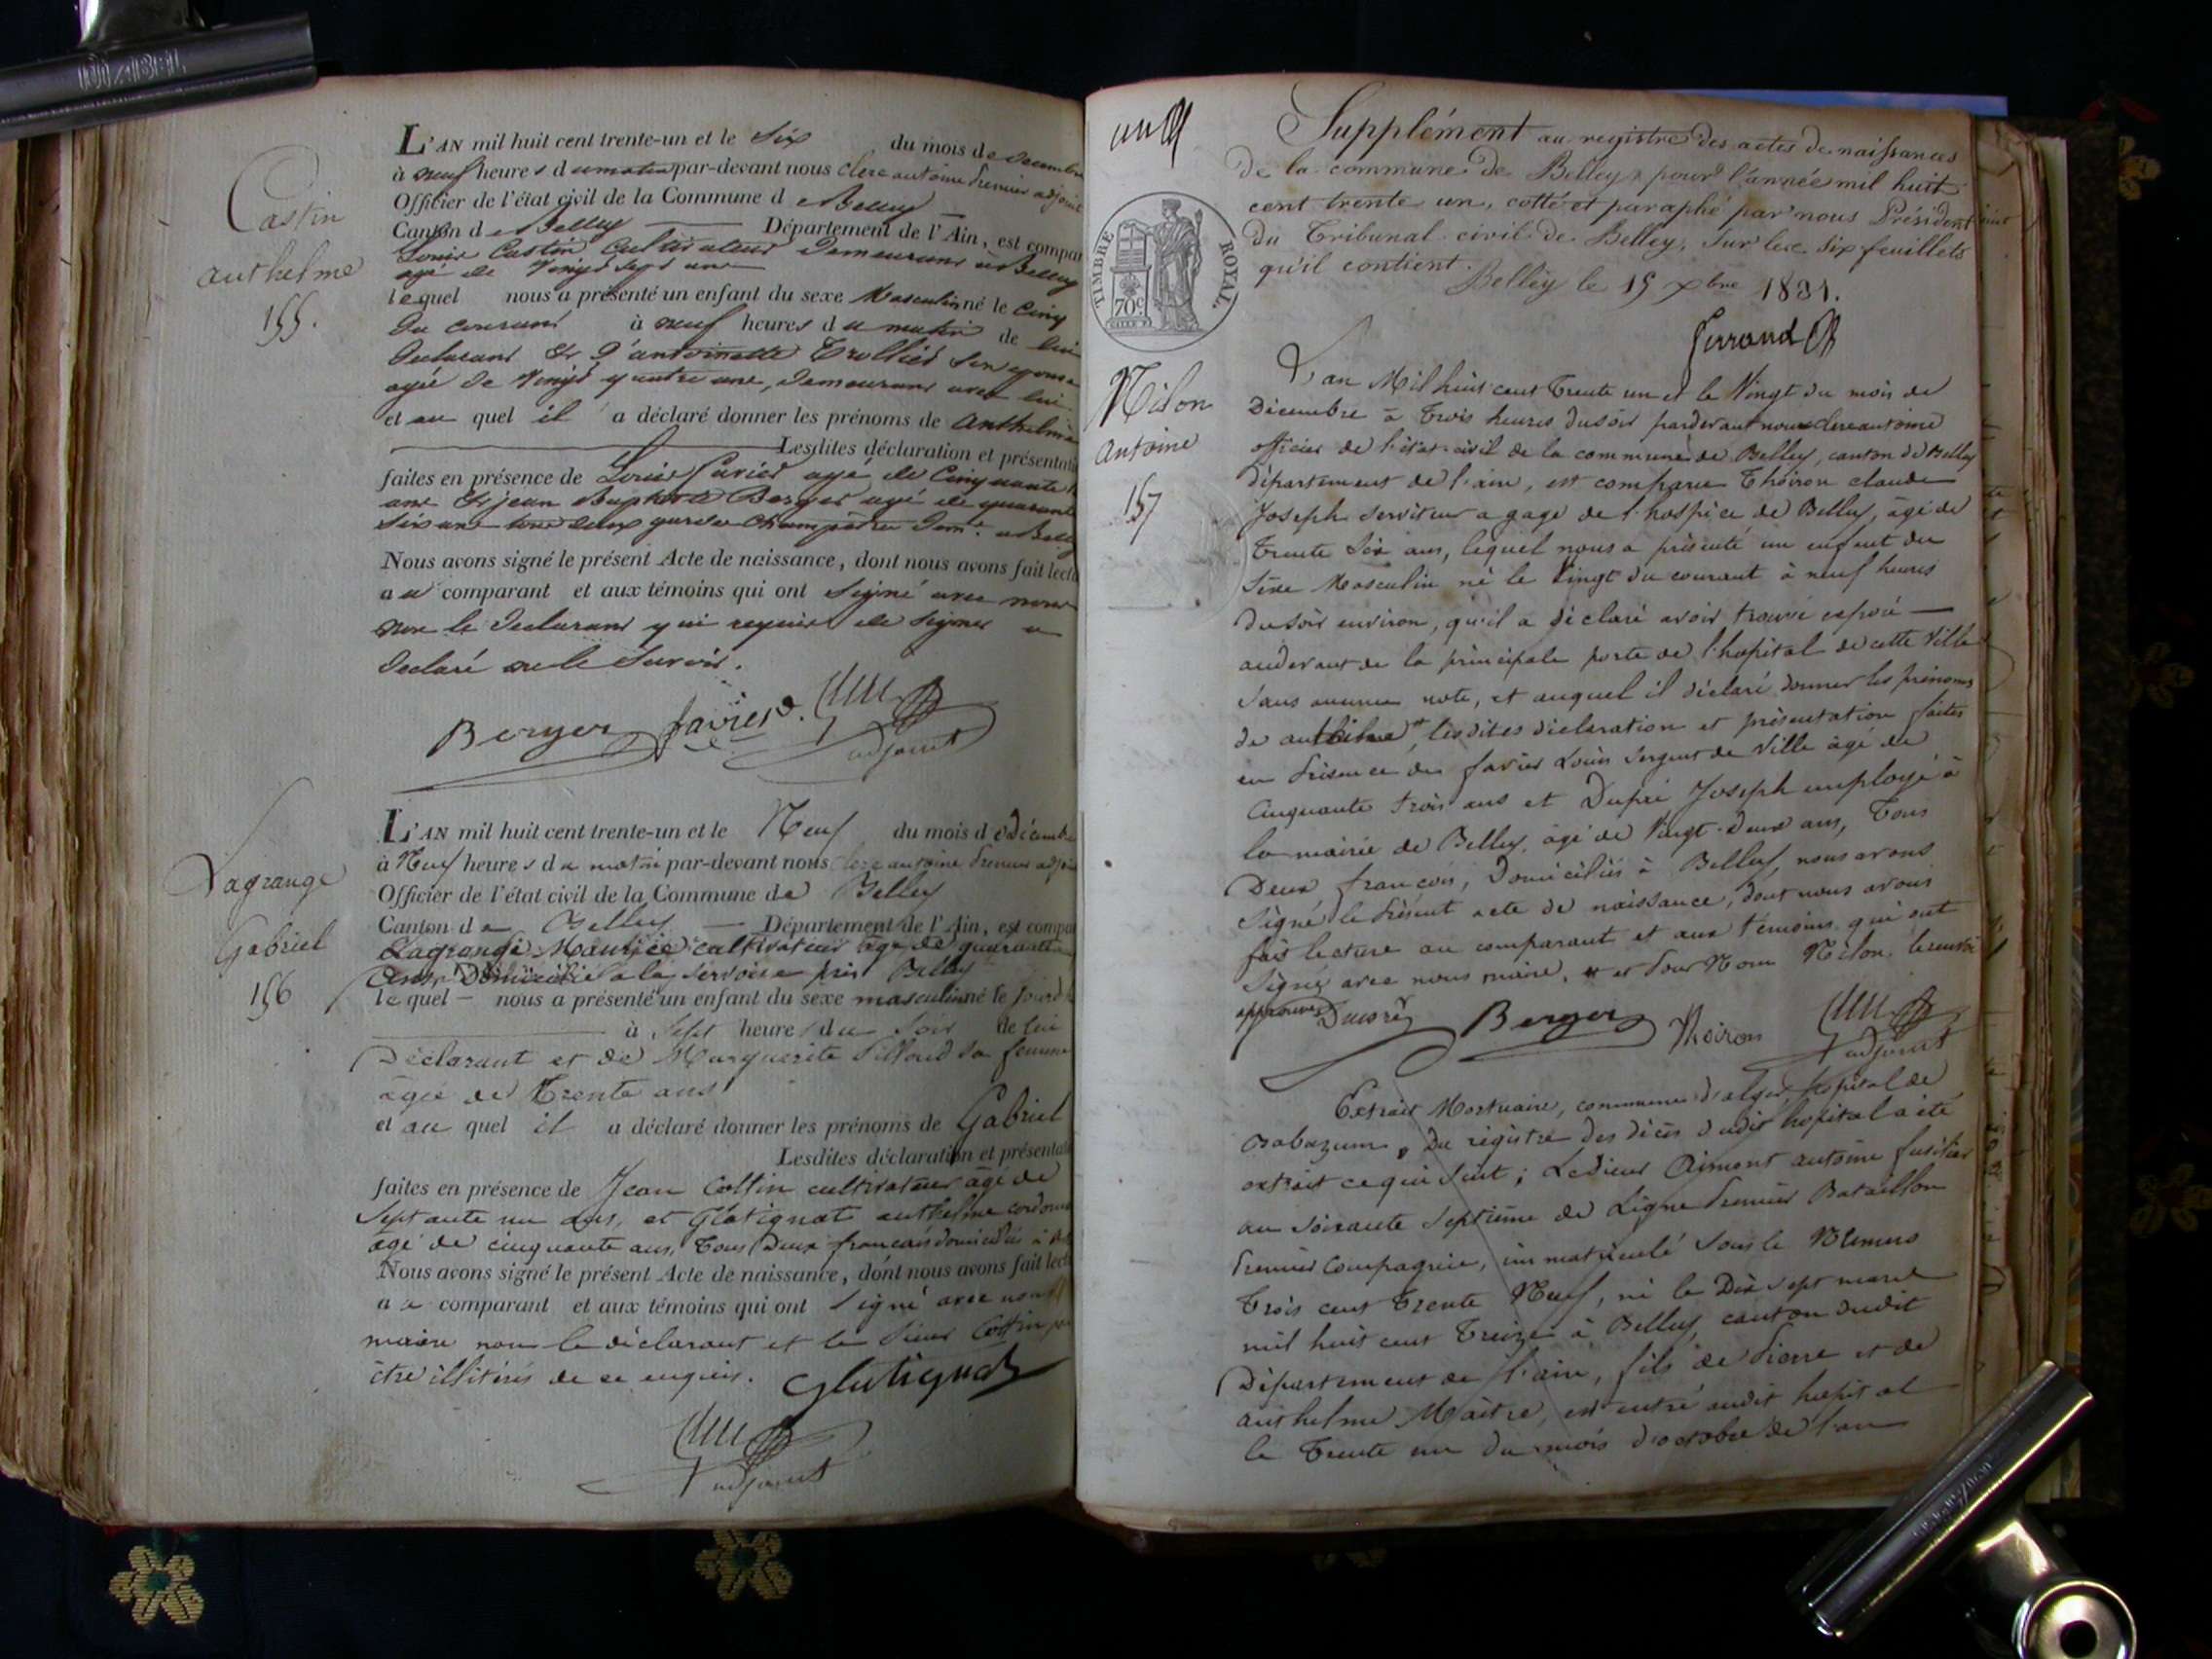 Castin
anthelme
155.
L'AN mil huit cent trente-un et le Six du mois de decembre
à neuf heures du matin par-devant nous clerc antoine premier adjoint
Officier de l'état civil de la Commune de Belley
Canton de Belley Département de l'Ain, est compar
Louis Castin Cultivateur Demeurant à Belley
agé de Vingt sept ans
lequel nous a présenté un enfant du sexe Masculin né le Cinq
du courant à neuf heures du matin de lui
Declarant & d'antoinette Trollier son epouse
agée de Vingt quatre ans, demeurant avec lui.
et au quel il a déclaré donner les prénoms de Anthelme
Lesdites déclaration et présentati
faites en présence de Louis favier agé de Cinquante
ans & jean Baptiste Berger agé de quarante
six ans tous deux gardes Champêtre dem.t a Belley
Nous avons signé le présent Acte de naissance, dont nous avons fait lectu
au comparant et aux témoins qui ont Signé avec nous
non le Declarant qui requis de Signer a
Declaré ne le Savoir.
Berger favier
adjoint
Lagrange
Gabriel
156
L'AN mil huit cent trente-un et le Neuf du mois de Décembre
à Neuf heures du matin par-devant nous clerc antoine premier adjoint
Officier de l'état civil de la Commune de Belley
Canton de Belley Département de l'Ain, est compa
Lagrange Maurice cultivateur agé de quarante
ans, Domicilié à la Servoise près Belley
lequel nous a présenté un enfant du sexe masculin né le jourd
à Sept heures du Soir de lui
Déclarant et de Marguerite Billoud sa femme
âgée de Trente ans
et au quel il a déclaré donner les prénoms de Gabriel
Lesdites déclaration et présentati
faites en présence de Jean Cottin cultivateur âgé de
Septante un ans, et Glatignat anthelme cordonn
âgé de cinquante ans, Tous Deux français domiciliés à
Nous avons signé le présent Acte de naissance, dont nous avons fait lect
au comparant et aux témoins qui ont Signé avec nous
maire non le déclarant et le Sieur Cottin pour
être illitérés de ce enquis.
Glatignat
adjoint
Supplément au registre des actes de naissances
de la commune de Belley pour l'année mil huit
cent trente un, cotté et paraphé par nous Président
du Tribunal civil de Belley, sur les six feuillets
qu'il contient.
Belley le 15 xbre 1831.
Ferrand
TIMBRE ROYAL.
70c
Milon
Antoine
157
L'an Mil huit cent Trente un et le Vingt du mois de
Décembre à Trois heures du soir pardevant nous clerc antoine
officier de l'état-civil de la commune de Belley, canton de Belley
département de l'ain, est comparu Thoiron claude
Joseph Serviteur a gage de l'hospice de Belley, âgé de
Trente Six ans, lequel nous a présenté un enfant du
Sexe Masculin né le Vingt du courant à neuf heures
du soir environ, qu'il a déclaré avoir trouvé exposé
audevant de la principale porte de l'hopital de cette Ville
sans aucune note, et auquel il déclaré donner les prénoms
de antoine, lesdites déclaration et présentation faites
en présence de favier Louis Sergent de Ville âgé de
Cinquante trois ans et Dupré Joseph employé à
la mairie de Belley, âgé de Vingt-Deux ans, Tous
Deux françois, Domiciliés à Belley, nous avons
Signé le présent acte de naissance, dont nous avons
fait lecture au comparant et aux témoins qui ont
Signé avec nous maire, et pour Nom Milon. le renvoi
approuvé
Berger Thoiron
adjoint
Extrait Mortuaire, commune d'alger, hopital de
Babazum, Du régistre des décès dudit hopital a été
extrait ce qui Suit; Le Sieur Aimont antoine fusilier
au Soixante Septième de Ligne Premier Bataillon
Premier Compagnie, immatriculé Sous le Numero
Trois cent Trente Neuf, né le Dix Sept mars
mil huit cent Treize à Belley, canton dudit
Département de l'ain, fils de Pierre et de
anthelme Maitre, est entré audit hopital
le Trente un du mois d'octobre de l'an